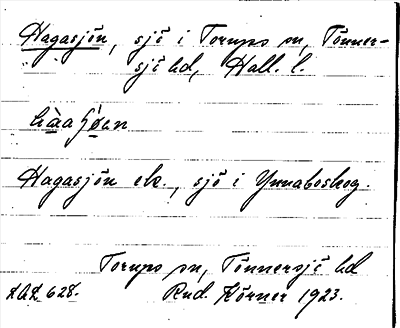 Hagasjön, sjö i Torups sn, Tönner-
sjö hd, Hall. l.
Hagasjön ek., sjö i Ynnaboskog.
Torups sn, Tönnersjö hd
Rud. Körner 1923.